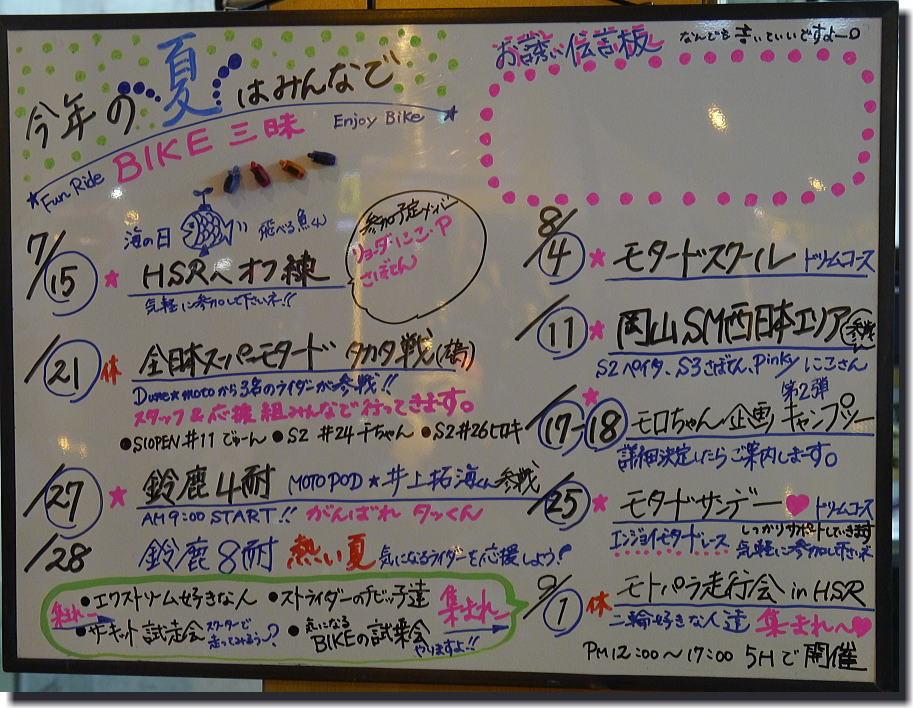 今年の夏はみんなで
★Fun Ride BIKE 三昧 Enjoy Bike ★
お誘い伝言板 なんでも書いていいですよー。
7/15 海の日 飛べる魚くん
★ HSRへオフ練
気軽に参加して下さいネ!!
参加予定メンバー
リョータ・にこ・P
さぼてん
/21 休 全日本スーパーモタード タカタ戦(鶴)
Dune★motoから3名のライダーが参戦!!
スタッフ&応援組みんなで行ってきます。
●S1OPEN #11 でぃーん ●S2 #24 干ちゃん ●S2 #26 ヒロキ
/27 ★ 鈴鹿4耐 MOTO POD★井上拓海くん参戦
AM9:00 START!! がんばれ タッくん
/28 鈴鹿8耐 熱い夏 気になるライダーを応援しよう!
集まれー
●エクストリーム好きな人 ●ストライダーのチビッ子達 集まれー
●サーキット試走会 スクーターで走ってみよう〜? ●気になるBIKEの試乗会 やりますよ!!
8/4 ★ モタードスクール ドリームコース
/11 ★ 岡山SM西日本エリア 参戦
S2ペイタ、S3さぼてん、Pinky にこさん
/17-18 ★ モロちゃん企画 第2弾 キャンプツー
詳細決定したらご案内します。
/25 ★ モタードサンデー♥ ドリームコース
エンジョイモタードレース しっかりサポートしていきます
気軽に参加して下さいネ
9/1 休 モトパラ走行会 in HSR
二輪好きな人達 集まれ〜♥
PM12:00〜17:00 5Hで開催